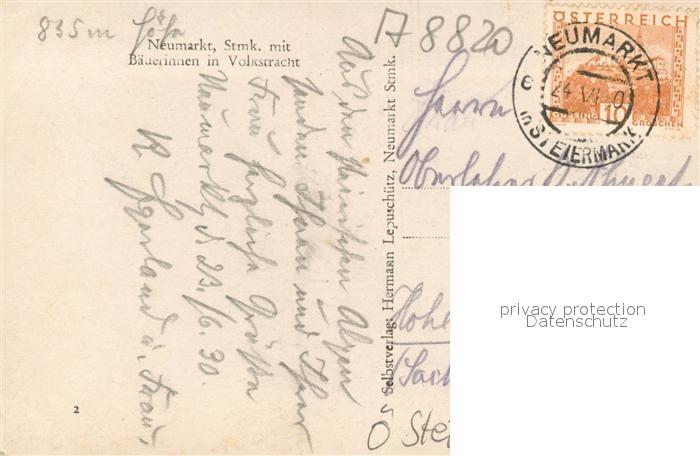 835m Höhe
Neumarkt, Stmk. mit
Bäuerinnen in Volkstracht
A 8820
ÖSTERREICH
GÜSSING 10 GROSCHEN
NEUMARKT
in STEIERMARK
Aus den Steirischen Alpen
senden Ihnen und Ihrer
Frau herzliche Grüße
Neumarkt d. 23./6.30.
K. Egerland u. Frau.
Selbstverlag: Hermann Lepuschütz, Neumarkt Stmk.
Herrn
Oberlehrer
Hohe
(Sac
privacy protection
Datenschutz
2
Ö Stei